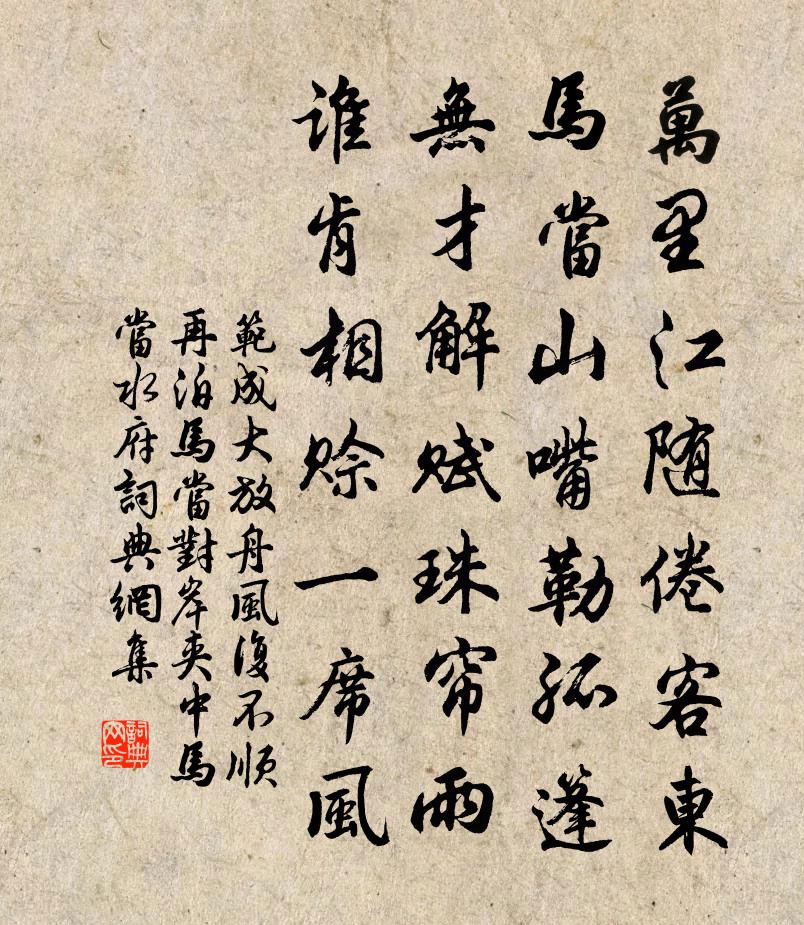 萬里江随倦客東
馬當山嘴勒孤蓬
無才解赋珠帘雨
谁肯相赊一席風
範成大放舟風復不顺
再泊馬當對岸夹中馬
當水府詞典網集
詞典網印